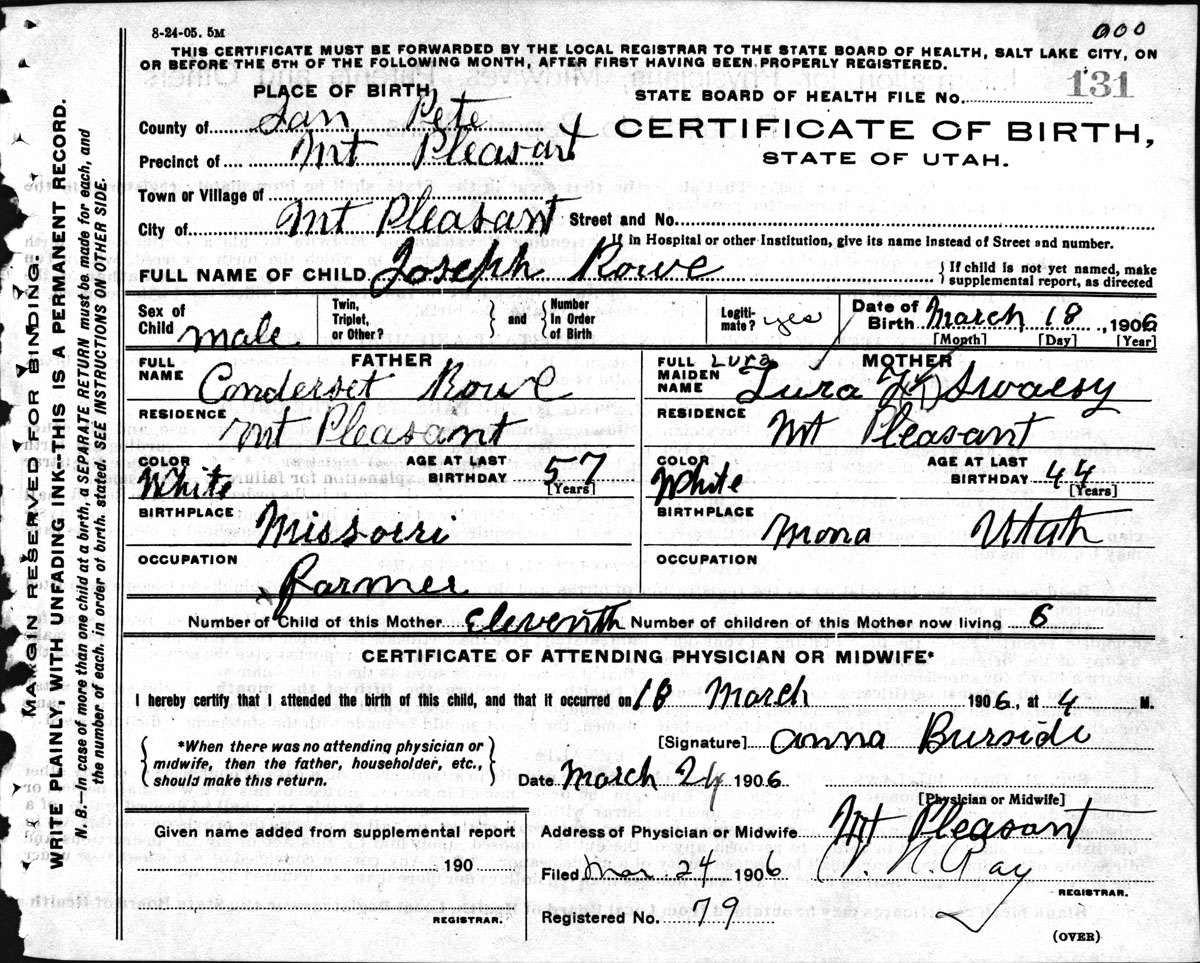 8-24-05. 5M
000
THIS CERTIFICATE MUST BE FORWARDED BY THE LOCAL REGISTRAR TO THE STATE BOARD OF HEALTH, SALT LAKE CITY, ON
OR BEFORE THE 5TH OF THE FOLLOWING MONTH, AFTER FIRST HAVING BEEN PROPERLY REGISTERED.
PLACE OF BIRTH,
STATE BOARD OF HEALTH FILE No. 131
County of San Pete
CERTIFICATE OF BIRTH,
Precinct of Mt Pleasant
STATE OF UTAH.
Town or Village of
City of Mt Pleasant Street and No.
If in Hospital or other Institution, give its name instead of Street and number.
FULL NAME OF CHILD Joseph Rowe { If child is not yet named, make
supplemental report, as directed
Sex of Child male
Twin, Triplet, or Other? } and { Number In Order of Birth
Legiti- mate? yes
Date of Birth March 18, 1906
[Month] [Day] [Year]
FATHER
FULL NAME Conderset Rowe
RESIDENCE Mt Pleasant
COLOR White AGE AT LAST BIRTHDAY 57
[Years]
BIRTHPLACE Missorri
OCCUPATION Farmer
MOTHER
FULL MAIDEN NAME Lura
Lura Swaesy
RESIDENCE Mt Pleasant
COLOR White AGE AT LAST BIRTHDAY 44
[Years]
BIRTHPLACE Mona Utah
OCCUPATION
Number of Child of this Mother Eleventh Number of children of this Mother now living 6
CERTIFICATE OF ATTENDING PHYSICIAN OR MIDWIFE*
I hereby certify that I attended the birth of this child, and that it occurred on 18 March 1906, at 4 M.
{ *When there was no attending physician or midwife, then the father, householder, etc., should make this return. }
[Signature] Anna Burside
Date March 24 1906
[Physician or Midwife]
Given name added from supplemental report
190
REGISTRAR.
Address of Physician or Midwife Mt Pleasant
Filed Mar 24 1906 Ray
REGISTRAR.
Registered No. 79
(OVER)
MARGIN RESERVED FOR BINDING.
WRITE PLAINLY, WITH UNFADING INK—THIS IS A PERMANENT RECORD.
N. B.—In case of more than one child at a birth, a SEPARATE RETURN must be made for each, and
the number of each, in order of birth, stated. SEE INSTRUCTIONS ON OTHER SIDE.